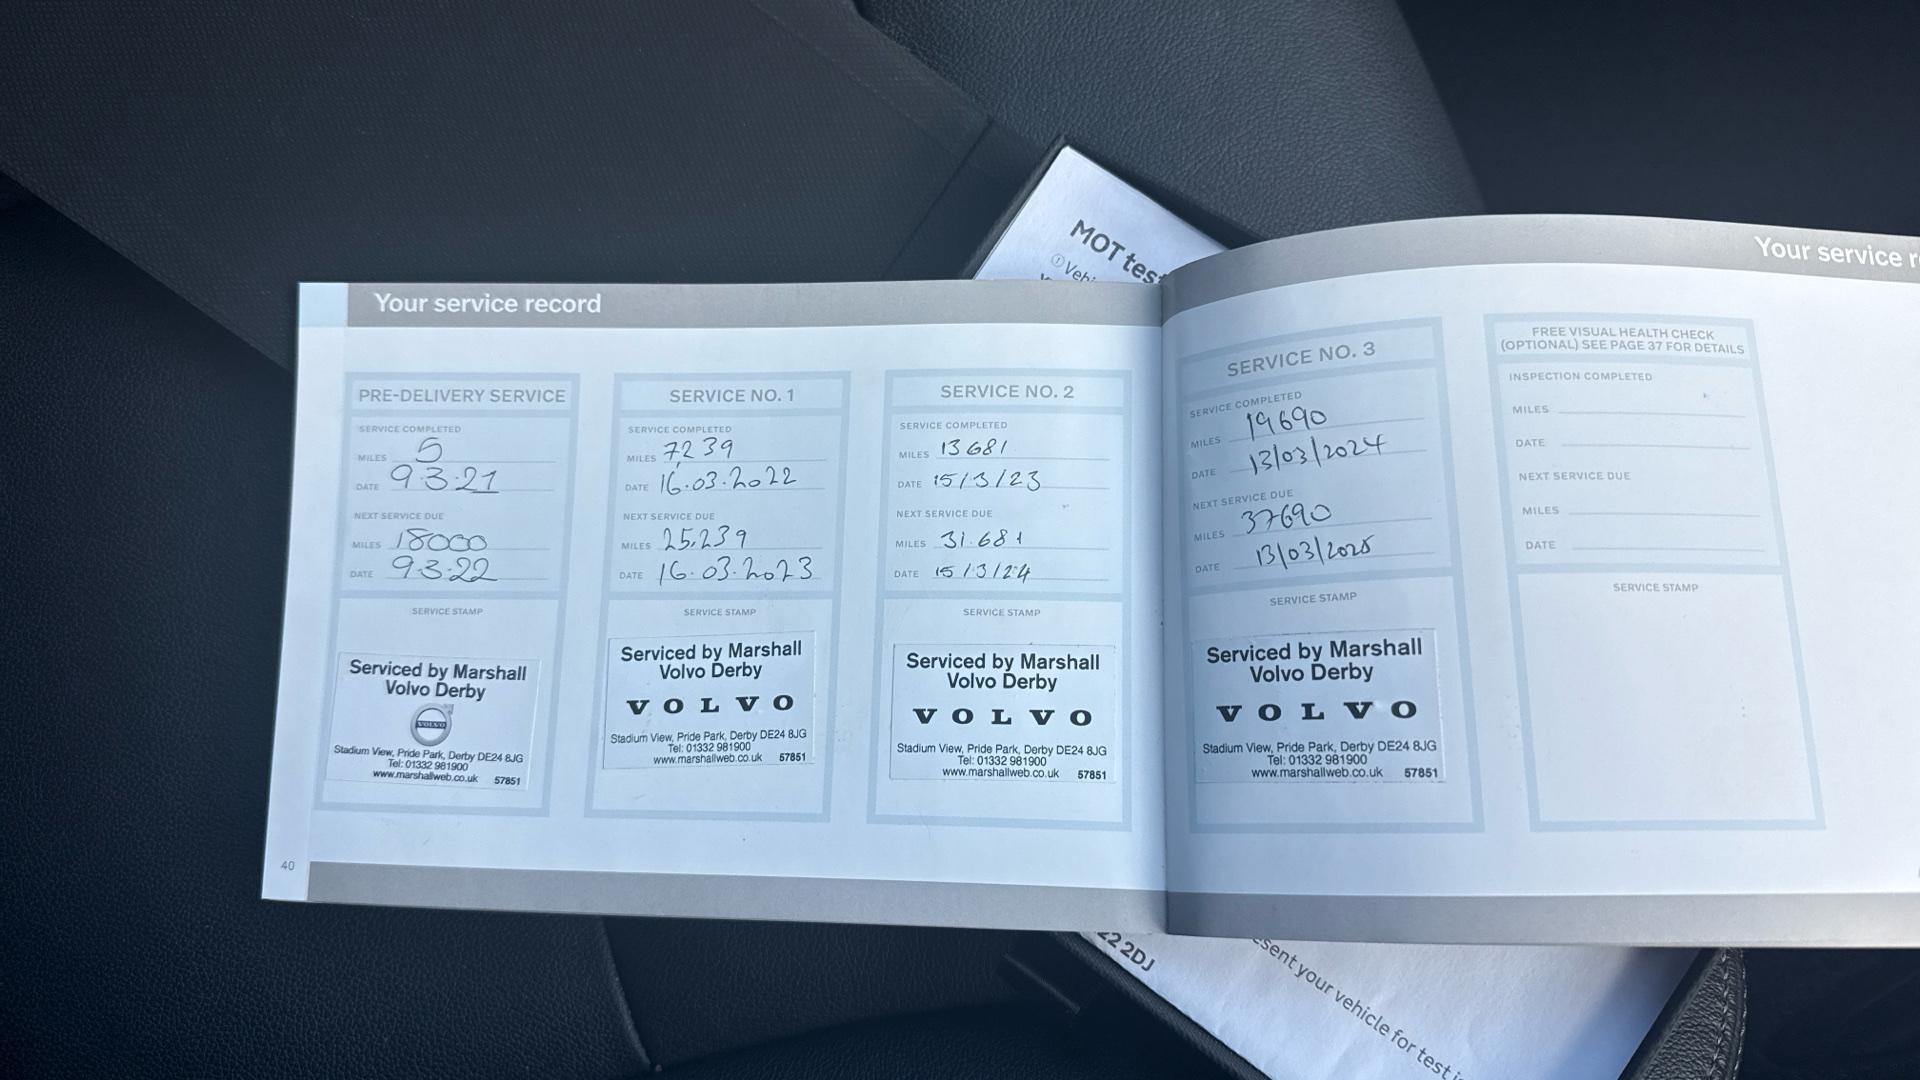 MOT test
Vehi
Your service record
PRE-DELIVERY SERVICE
SERVICE COMPLETED
MILES 5
DATE 9.3.21
NEXT SERVICE DUE
MILES 18000
DATE 9.3.22
SERVICE STAMP
Serviced by Marshall
Volvo Derby
VOLVO
Stadium View, Pride Park, Derby DE24 8JG
Tel: 01332 981900
www.marshallweb.co.uk 57851
SERVICE NO. 1
SERVICE COMPLETED
MILES 7239
DATE 16.03.2022
NEXT SERVICE DUE
MILES 25,239
DATE 16.03.2023
SERVICE STAMP
Serviced by Marshall
Volvo Derby
VOLVO
Stadium View, Pride Park, Derby DE24 8JG
Tel: 01332 981900
www.marshallweb.co.uk 57851
SERVICE NO. 2
SERVICE COMPLETED
MILES 13681
DATE 15/3/23
NEXT SERVICE DUE
MILES 31.681
DATE 15/3/24
SERVICE STAMP
Serviced by Marshall
Volvo Derby
VOLVO
Stadium View, Pride Park, Derby DE24 8JG
Tel: 01332 981900
www.marshallweb.co.uk 57851
40
Your service r
SERVICE NO. 3
SERVICE COMPLETED
MILES 19690
DATE 13/03/2024
NEXT SERVICE DUE
MILES 37690
DATE 13/03/2025
SERVICE STAMP
Serviced by Marshall
Volvo Derby
VOLVO
Stadium View, Pride Park, Derby DE24 8JG
Tel: 01332 981900
www.marshallweb.co.uk 57851
FREE VISUAL HEALTH CHECK
(OPTIONAL) SEE PAGE 37 FOR DETAILS
INSPECTION COMPLETED
MILES
DATE
NEXT SERVICE DUE
MILES
DATE
SERVICE STAMP
22 2DJ
esent your vehicle for test i